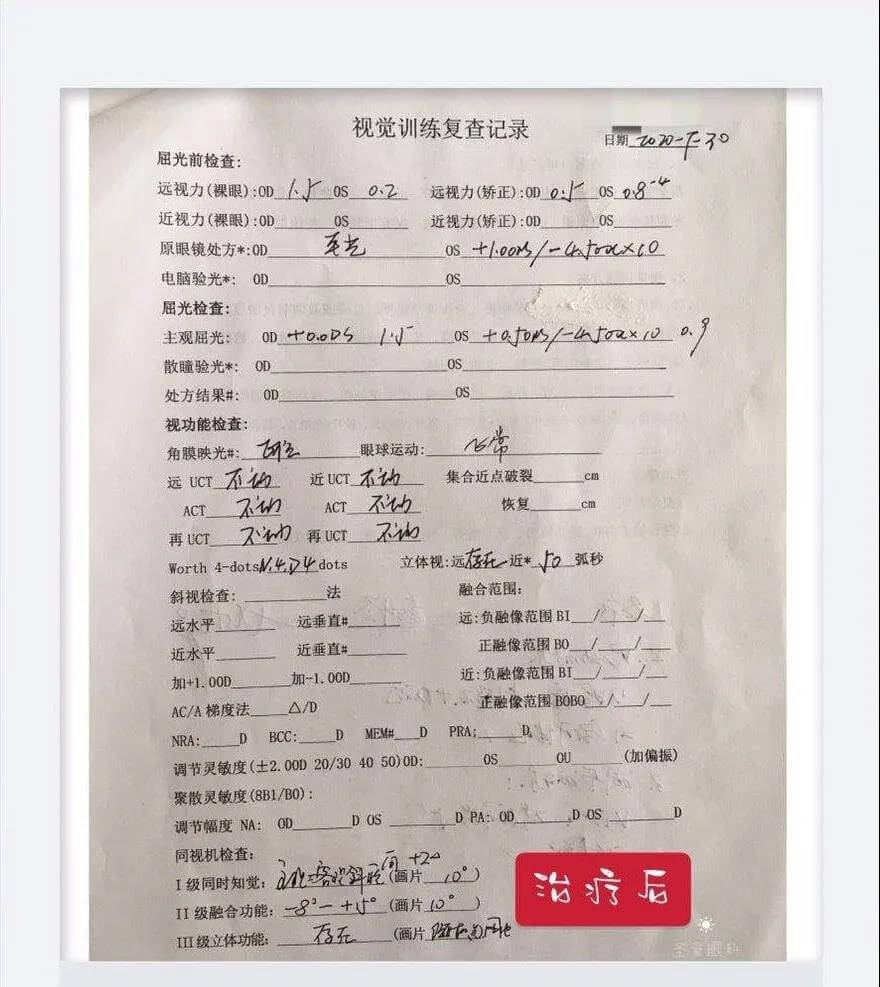 视觉训练复查记录
日期 2020-5-30
屈光前检查:
远视力(裸眼):OD 1.5 OS 0.2 远视力(矫正):OD 0.5 OS 0.8⁻⁴
近视力(裸眼):OD OS 近视力(矫正):OD OS
原眼镜处方*:OD 平光 OS +1.00DS/-4.50DC×10
电脑验光*: OD OS
屈光检查:
主观屈光: OD +0.0DS 1.5 OS +0.50DS/-4.50DC×10 0.9
散瞳验光*: OD OS
处方结果#: OD OS
视功能检查:
角膜映光#: 眼球运动: 正常
远 UCT 不动 近 UCT 不动 集合近点破裂 cm
ACT 不动 ACT 不动 恢复 cm
再 UCT 不动 再 UCT 不动
Worth 4-dots N.4, D4 dots 立体视:远 存在 近* 50 弧秒
斜视检查: 法 融合范围:
远水平 远垂直# 远:负融像范围 BI / /
近水平 近垂直# 正融像范围 BO / /
加+1.00D 加-1.00D 近:负融像范围 BI / /
AC/A 梯度法 △/D 正融像范围 BOBO / /
NRA: D BCC: D MEM# D PRA: D
调节灵敏度(±2.00D 20/30 40 50)OD: OS OU (加偏振)
聚散灵敏度(8B1/B0):
调节幅度 NA: OD D OS D PA: OD D OS D
同视机检查:
I 级同时知觉: (画片 10°)
II 级融合功能: -8°- +15° (画片 10°)
III 级立体功能: 存在 (画片
治疗后